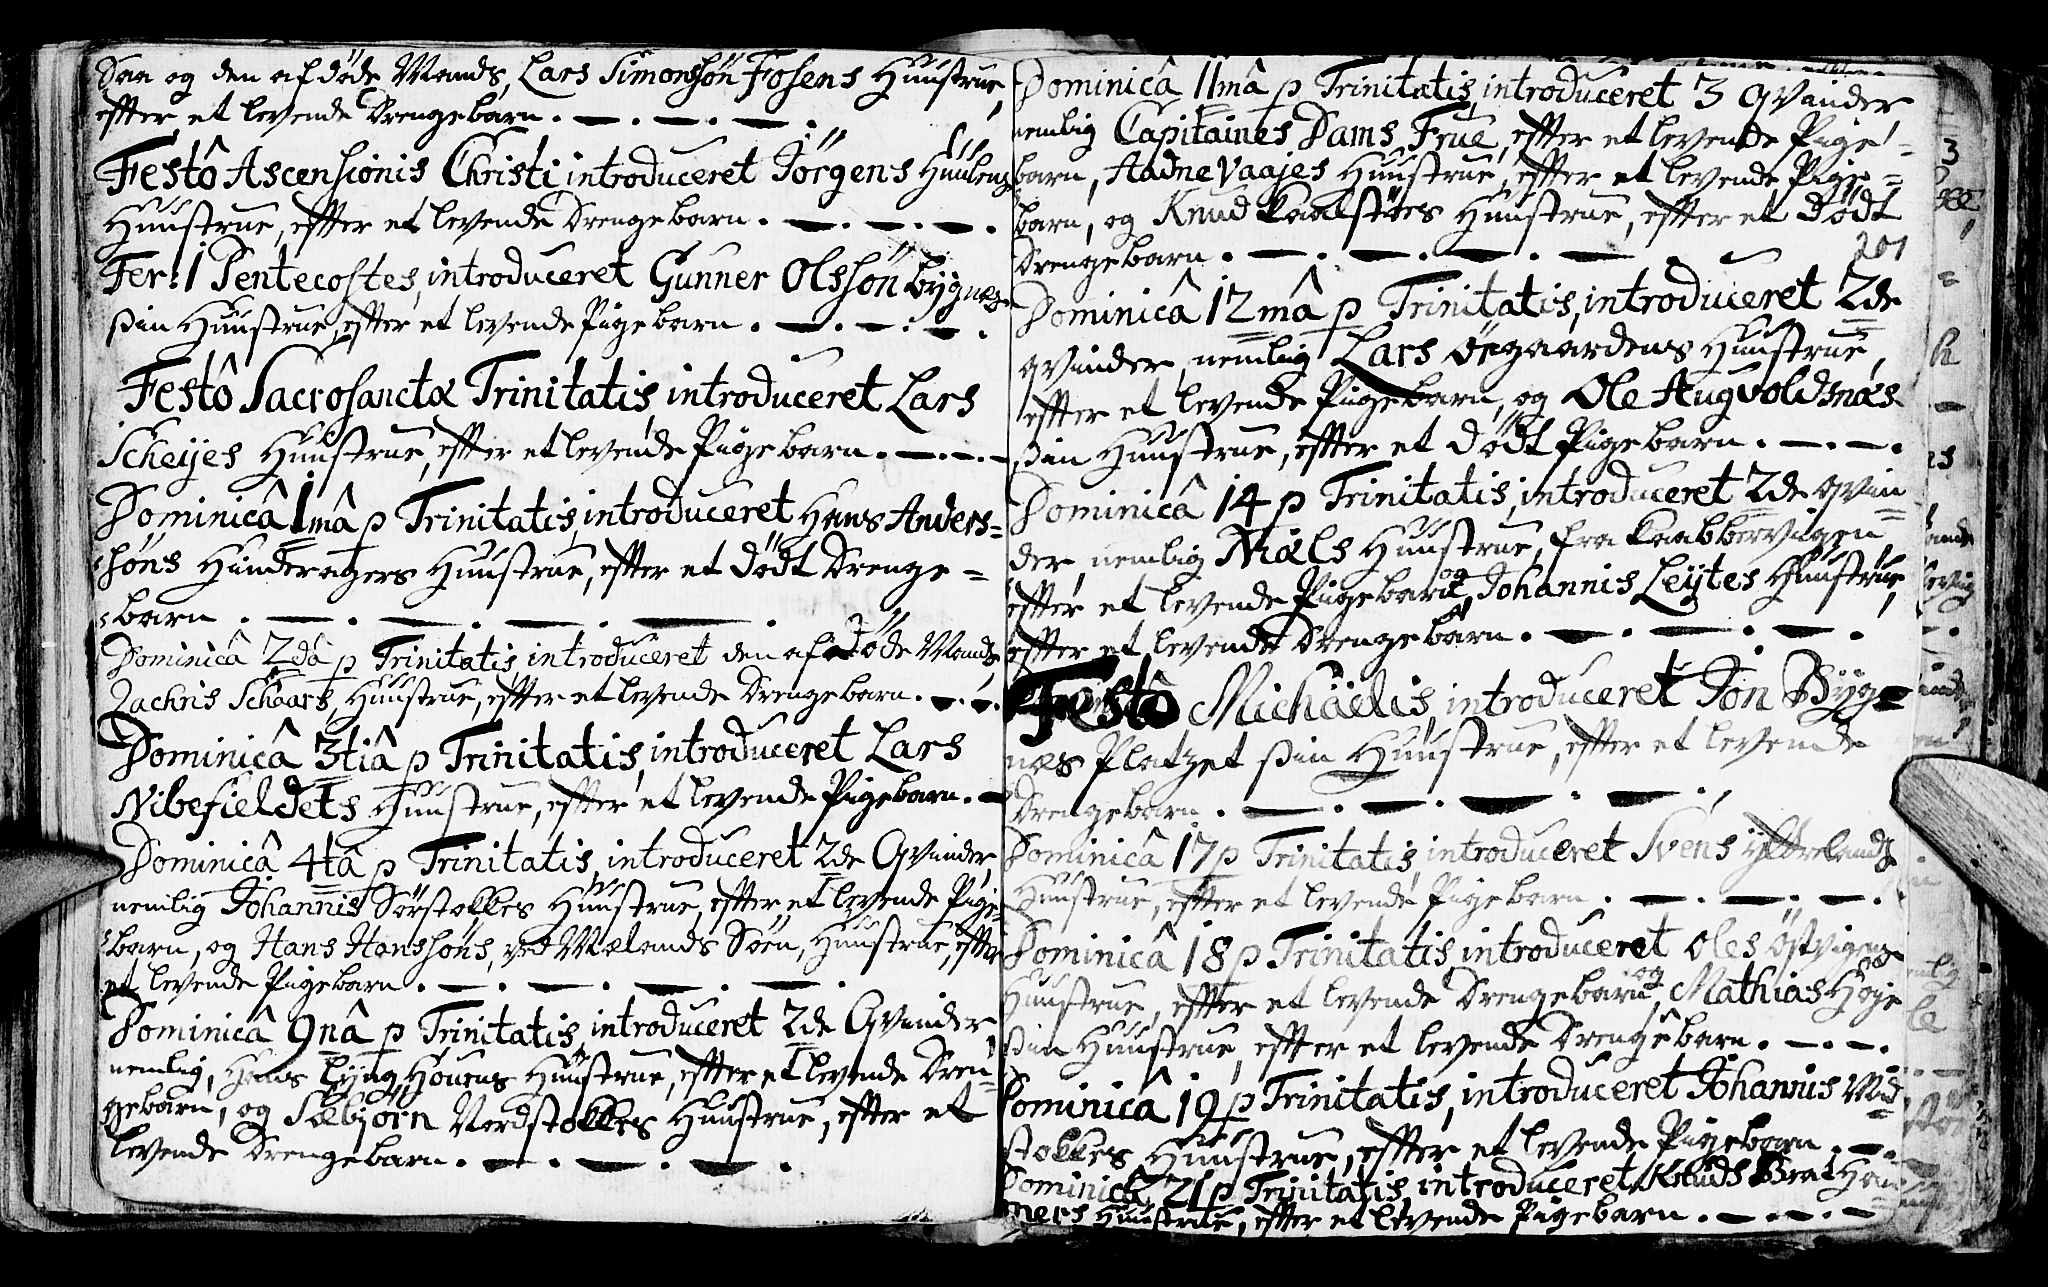 Saa og den afdöde Mands, Lars Simonsön Fosens Huustrue,
effter et levende Drengebarn.
Festô Ascensionis Christi introduceret Jörgens
Huustrue, effter et levende Drengebarn.
Fer: 1 Pentecostes, introduceret Gunner Olssön Bygnæs
sin Huustrue, effter et levende Pigebarn.
Festô Sacrosanctæ Trinitatis, introduceret Lars
Scheijes Huustrue, effter et levende Pigebarn.
Dominicâ 1mâ p Trinitatis, introduceret Hans Anders=
söns Huustrue, effter et dödt Drenge=
barn
Dominicâ 2dâ p Trinitatis, introduceret den afdöde Mands
Zachris Schaars, Huustrue, effter et levende Drengebarn.
Dominicâ 3tiâ p Trinitatis, introduceret Lars
Nibefieldets Huustrue, effter et levende Pigebarn.
Dominicâ 4tâ p Trinitatis, introduceret 2de Qvinder,
nemlig Johannis Sörstokkes Huustrue, effter et levende Pige=
barn, og Hans Hanssöns, ved Mælands Söen, Huustrue, effter
et levende Pigebarn.
Dominicâ 9nâ p Trinitatis, introduceret 2de Qvinder
nemlig, Hans Lyng Houens Huustrue, effter et levende Dren=
gebarn, og Sæbjörn Nordstokkes Huustrue, effter et
levende Drengebarn.
Dominicâ 11mâ p Trinitatis, introduceret 3 Qvinder
nemlig Capitaines Dams Frue, effter et levende Pige=
barn, Aadne Vaajes Huustrue, effter et levende Pige=
barn, og Knud Kaalstöes Huustrue, effter et dödt
Drengebarn.
201
Dominicâ 12mâ p Trinitatis, introduceret 2de
Qvinder, nemlig Lars Öegaardens Huustrue,
effter et levende Pigebarn, og Ole Augvoldsnæs
sin Huustrue, effter et dödt Pigebarn.
Dominicâ 14 p Trinitatis, introduceret 2de Qvin=
der, nemlig Niæls Huustrue, fra Kaabbervigen
effter et levende Pigebarn, og Johannis Leijtes Huustrue,
effter et levende Drengebarn.
Festô Michäelis, introduceret Jon Byg=
næs Platzet sin Huustrue, effter et levende
Drengebarn.
Dominicâ 17 p Trinitatis, introduceret Svens
Huustrue, effter et levende Pigebarn.
Dominicâ 18 p Trinitatis, introduceret Oles Östvigens
Huustrue, effter et levende Drengebarn, og Mathias Höje
sin Huustrue, effter et levende Drengebarn.
Dominicâ 19 p Trinitatis, introduceret Johannis Mid=
stokkes Huustrue, effter et levende Pigebarn.
Dominicâ 21 p Trinitatis, introduceret Knuds Brat Ham
mers Huustrue, effter et levende Pigebarn.